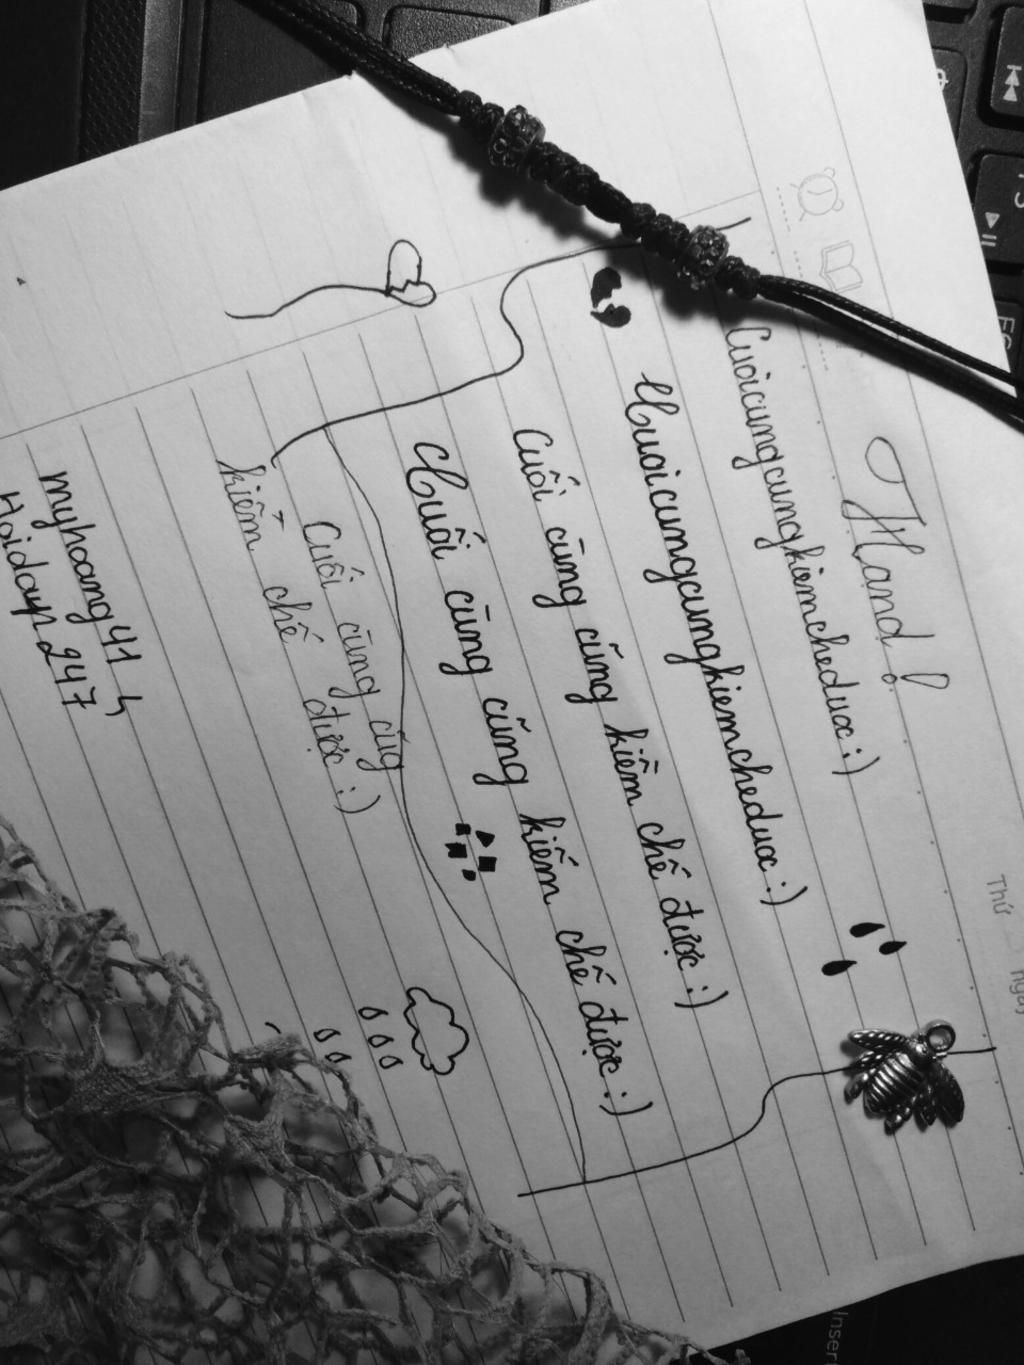 Thứ
ngày
Hand!
Cuoicungcungkiemcheduoc:)
Cuoicungcungkiemcheduoc:)
Cuối cùng cũng kiềm chế được:)
Cuối cùng cũng kiềm chế được:)
Cuối cùng cũg
kiềm chế được:)
myhoang41
Hoidap247
Insert